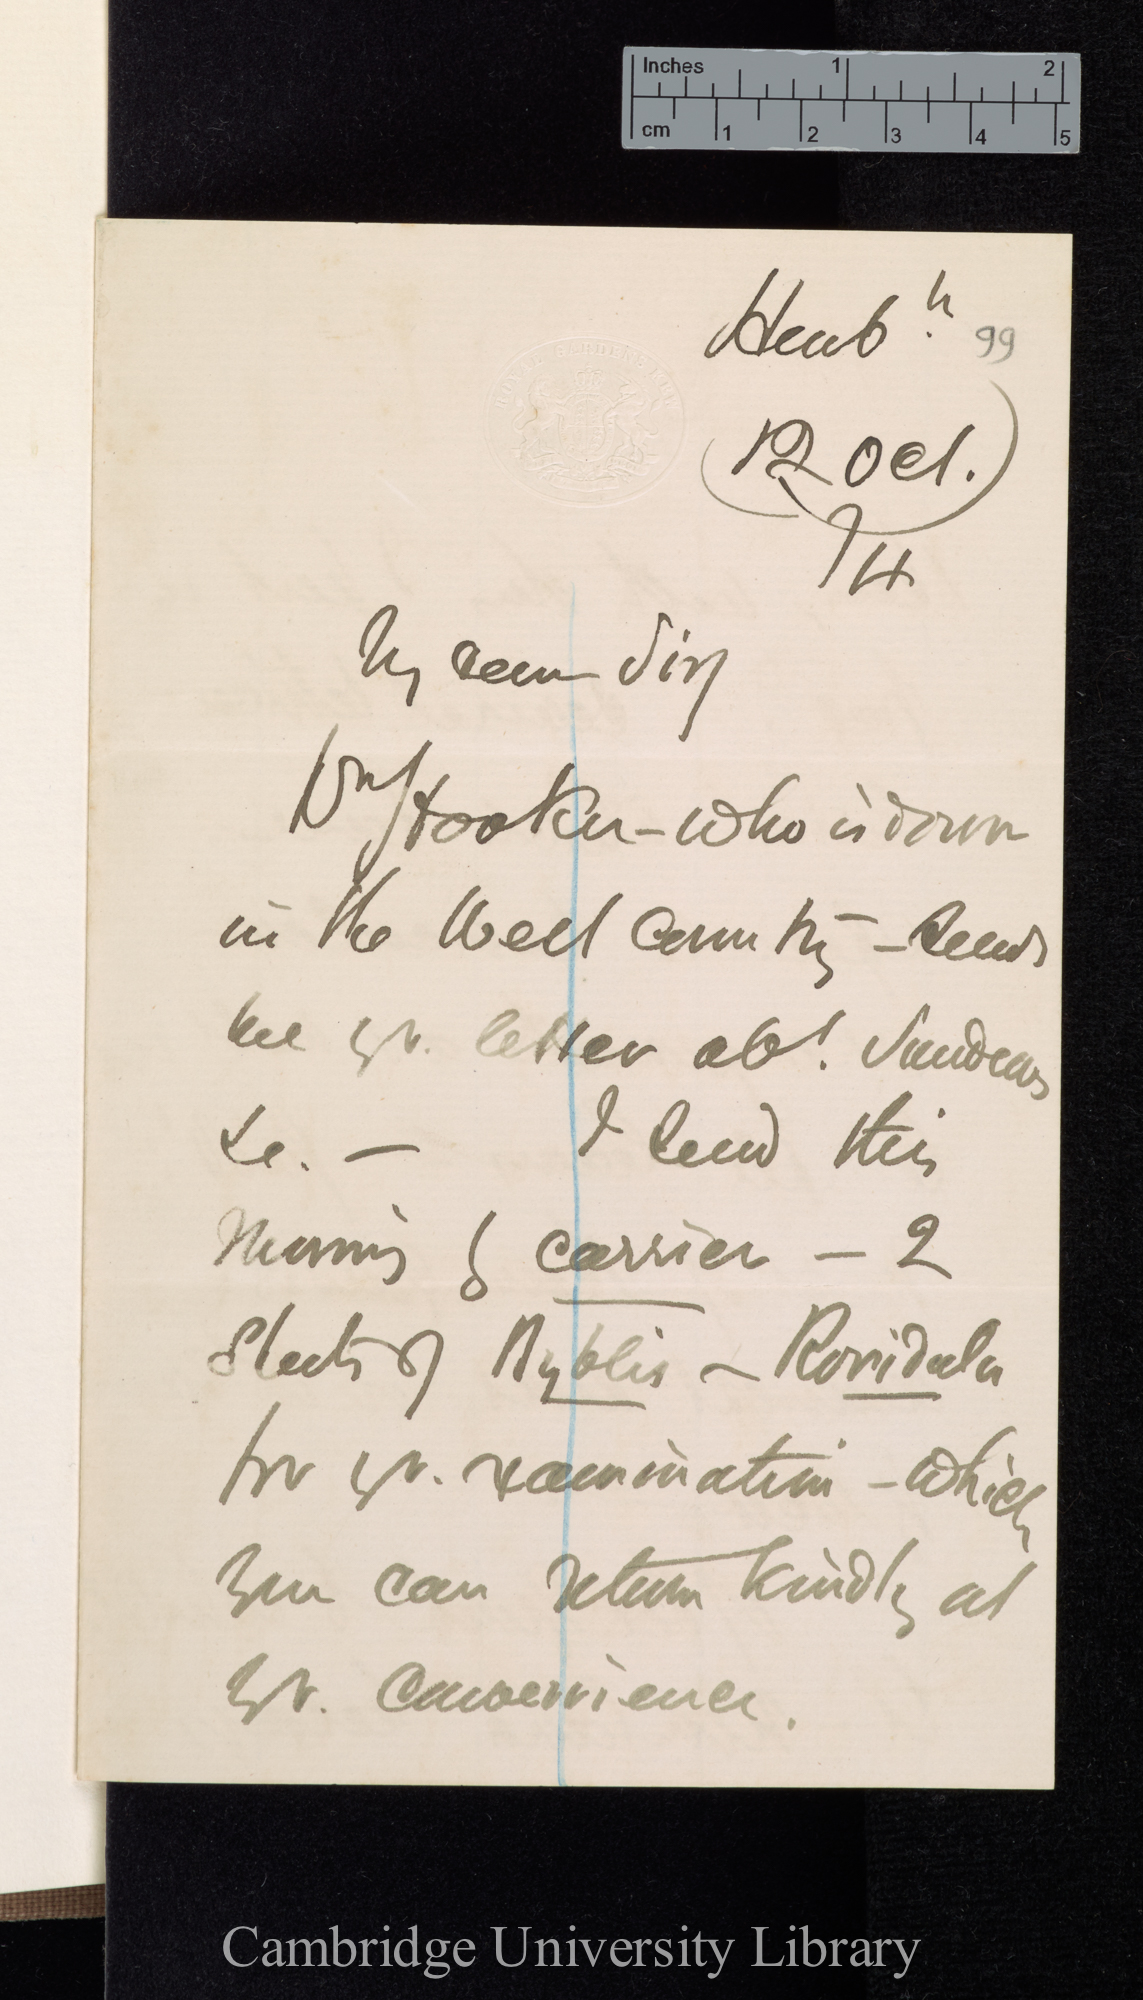 Inches 1 2
cm 1 2 3 4 5
Herb.m 99
ROYAL GARDENS KEW
12 Oct.
/74
My dear Sir/
Dr/ Hooker – who is down
in the West Country – sends
me yr. letter abt. Sundews
&c. — I send this
morning by carrier – 2
sheets of Byblis – Roridula
for yr. examination – which
you can return kindly at
yr. convenience.
Cambridge University Library